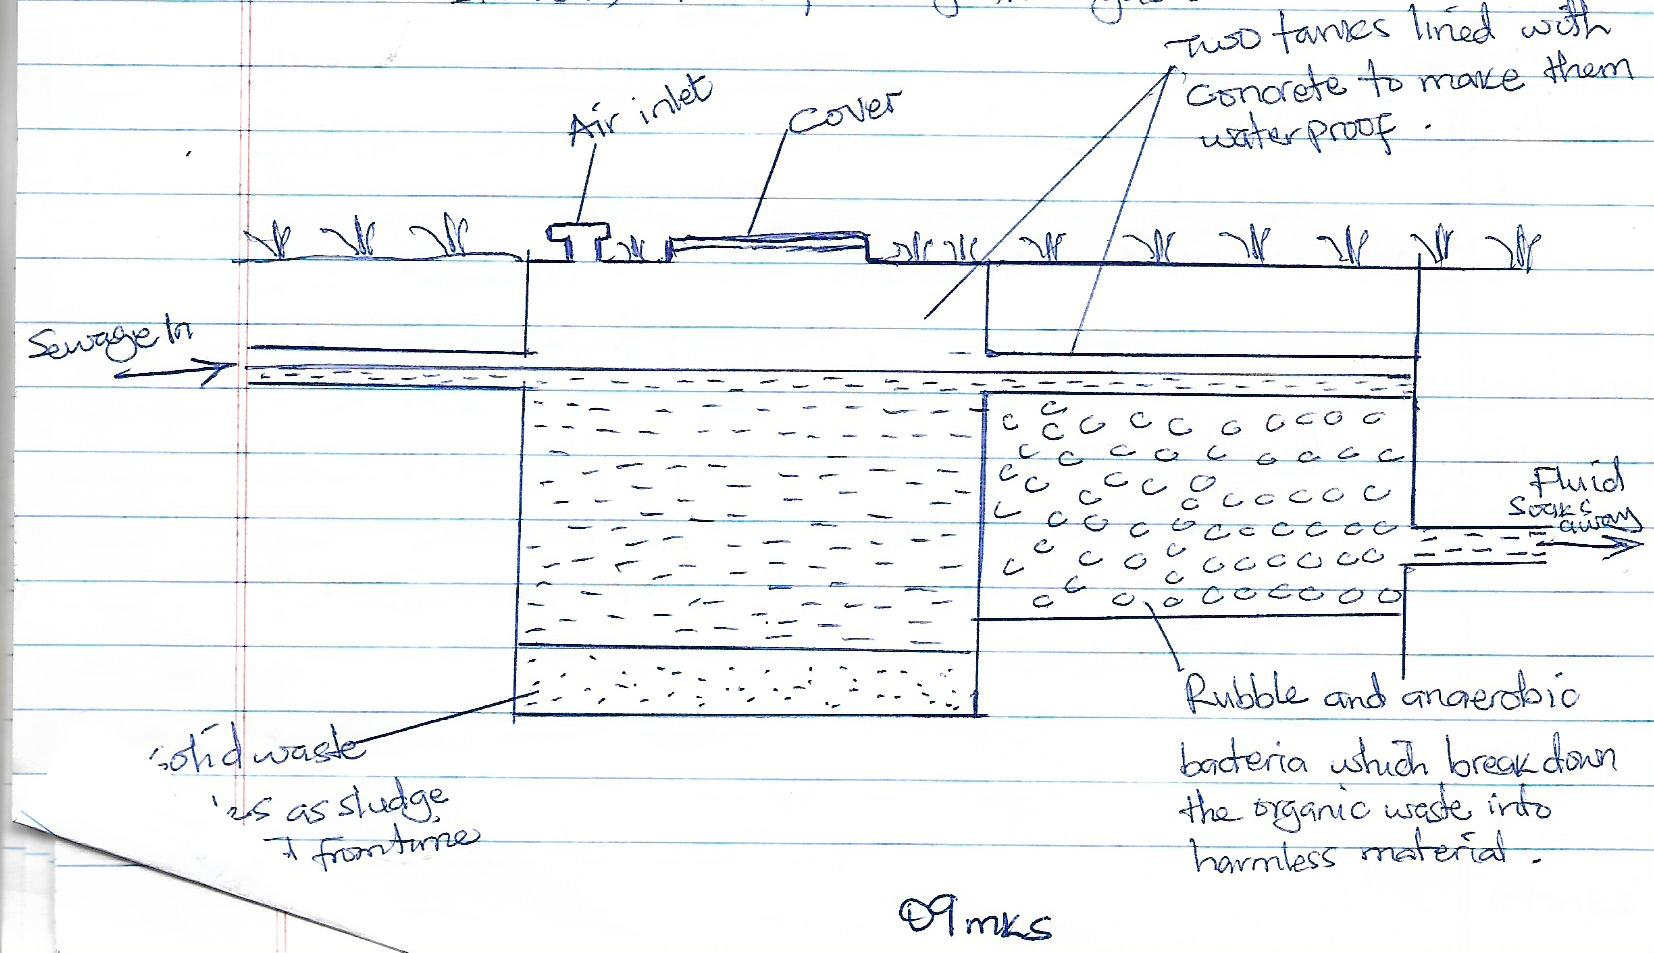 Two tanks lined with
concrete to make them
waterproof.
Air inlet
cover
Sewage In
Fluid
soaks
away
Rubble and anaerobic
bacteria which break down
the organic waste into
harmless material.
solid waste
as sludge
from time
09 mks